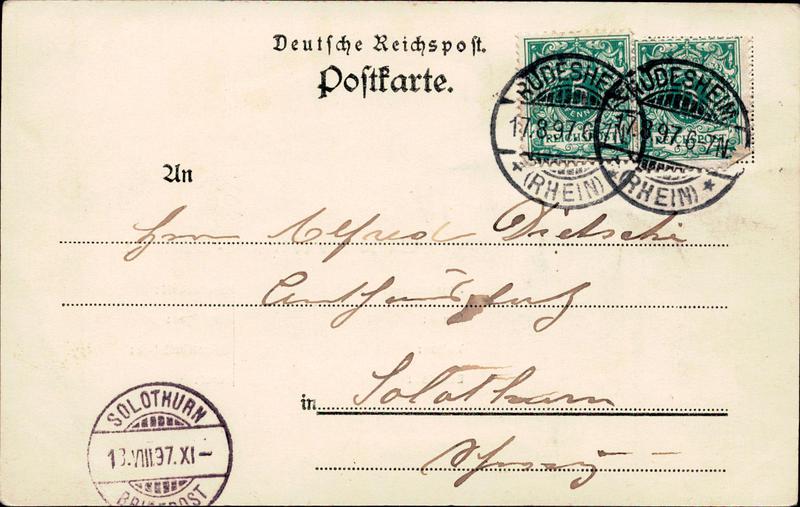 Deutsche Reichspost.
Postkarte.
RÜDESHEIM
17.8.97.6-7N.
* (RHEIN) *
REICHSPOST
RÜDESHEIM
17.8.97.6-7N.
* (RHEIN) *
An
Herrn Alfred Dietschi
in Solothurn
Schweiz
SOLOTHURN
18.VIII.97.XI-
BRIEFPOST